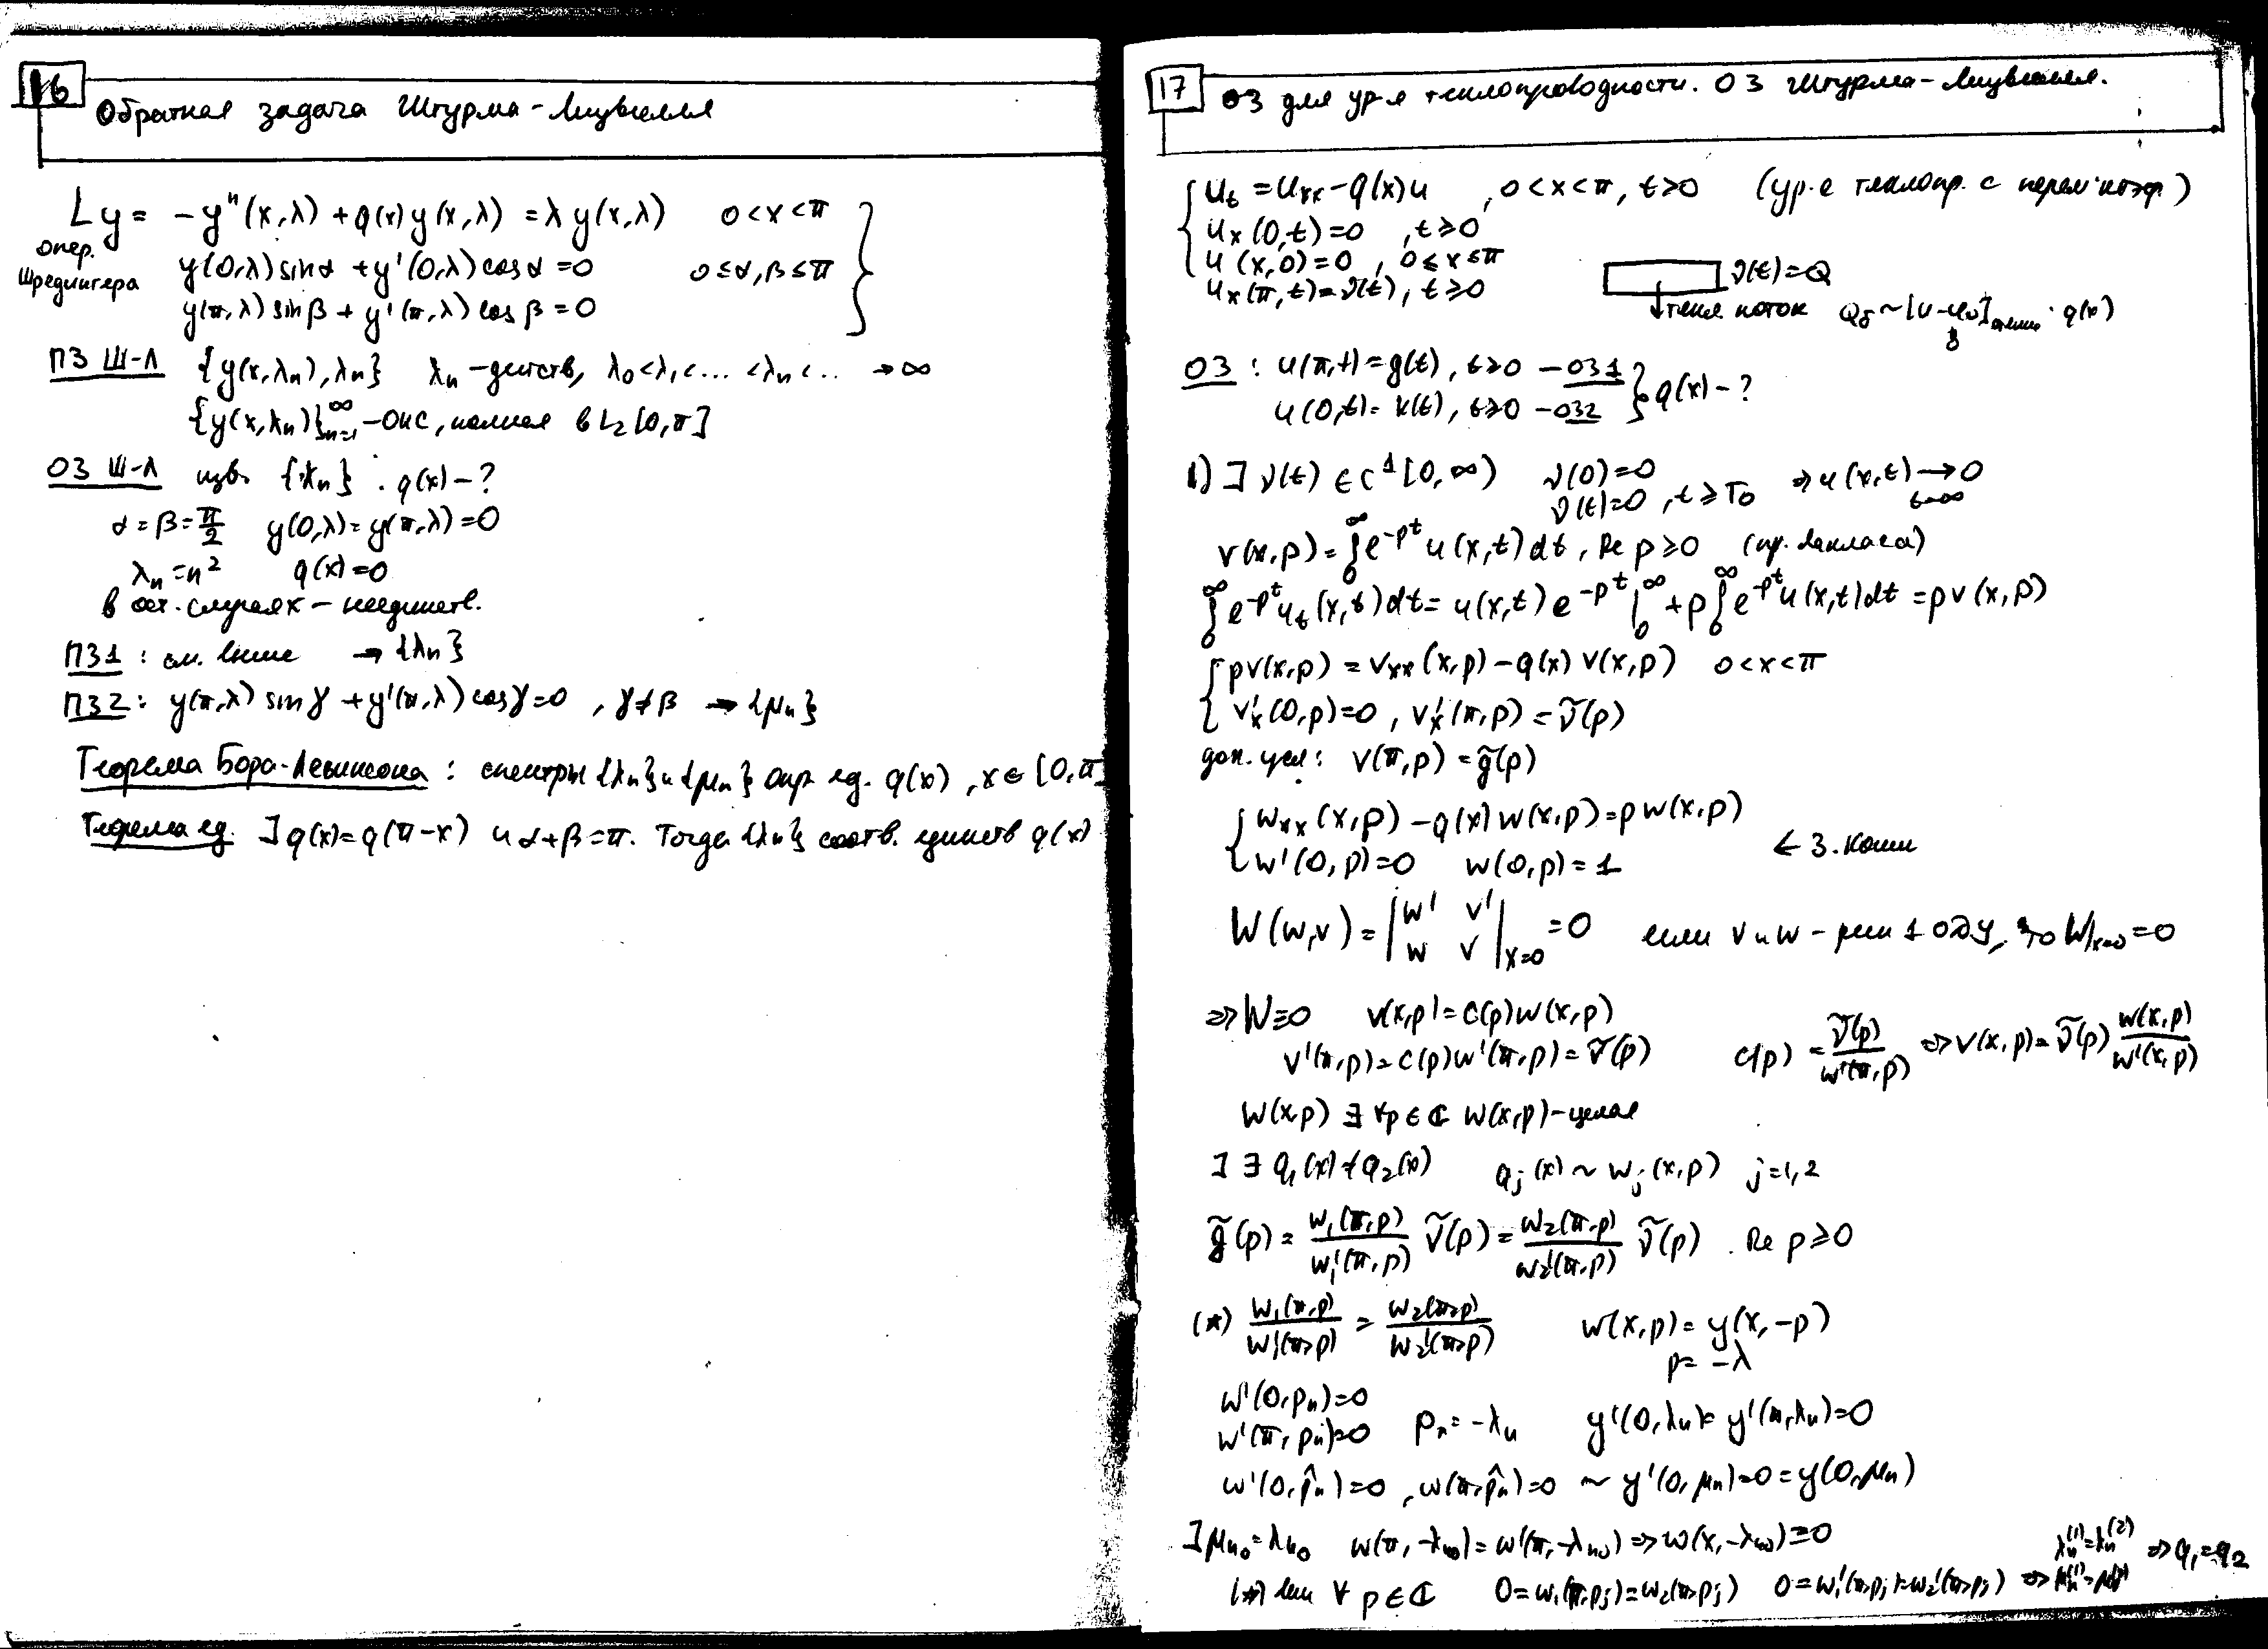 16
Обратная задача Штурма-Лиувилля
Ly = -y''(x,λ) + q(x)y(x,λ) = λy(x,λ) 0<x<π
опер. Шредингера
y(0,λ)sinα + y'(0,λ)cosα = 0 0≤α,β≤π
y(π,λ)sinβ + y'(π,λ)cosβ = 0
ПЗ Ш-Л {y(x,λₙ),λₙ} λₙ - действ, λ₀<λ₁<... <λₙ<.. → ∞
{y(x,λₙ)}ₙ₌₁^∞ - ОНС, полная в L₂[0,π]
ОЗ Ш-Л изв. {λₙ}. q(x) - ?
α=β=π/2 y(0,λ)=y(π,λ)=0
λₙ=n² q(x)=0
в ост. случаях - неединств.
ПЗ1: см. выше → {λₙ}
ПЗ2: y(π,λ)sinγ + y'(π,λ)cosγ=0, γ≠β → {μₙ}
Теорема Борга-Левинсона: спектры {λₙ} и {μₙ} опр ед. q(x), x∈[0,π]
Теорема ед. ∃ q(x)=q(π-x) и α+β=π. Тогда {λₙ} соотв. единств q(x)
17
ОЗ для ур-я теплопроводности. ОЗ Штурма-Лиувилля.
u_t = u_xx - q(x)u, 0<x<π, t>0 (ур-е теплопр. с перем. коэф.)
u_x(0,t)=0, t≥0
u(x,0)=0, 0≤x≤π
u_x(π,t)=ν(t), t≥0
ν(t)=Q
тепл. поток Q_δ~[u-u₀] · q(x)
0
ОЗ: u(π,t)=g(t), t>0 - ОЗ1
u(0,t)=k(t), t>0 - ОЗ2 } q(x) - ?
1) ∃ ν(t) ∈ C¹[0,∞) ν(0)=0
ν(t)=0, t≥T₀ ⇒ u(x,t) → 0 t→∞
v(x,p)=∫₀^∞ e^{-pt} u(x,t)dt, Re p≥0 (пр. Лапласа)
∫₀^∞ e^{-pt} u_t(x,t)dt = u(x,t)e^{-pt}|₀^∞ + p∫₀^∞ e^{-pt} u(x,t)dt = pv(x,p)
pv(x,p) = v_xx(x,p) - q(x)v(x,p) 0<x<π
v'_x(0,p)=0, v'_x(π,p)=ν̃(p)
доп. усл: v(π,p)=g̃(p)
w_xx(x,p) - q(x)w(x,p)=pw(x,p)
w'(0,p)=0 w(0,p)=1 ← З. Коши
W(w,v)=|w' v'; w v|_{x=0}=0 если v и w - реш 1 ОДУ, то W|ₓ₌₀=0
⇒ W≡0 v(x,p)=C(p)w(x,p)
v'(π,p)=C(p)w'(π,p)=ν̃(p) C(p)=ν̃(p)/w'(π,p) ⇒ v(x,p)=ν̃(p) w(x,p)/w'(x,p)
w(x,p) ∃ ∀p∈ℂ w(x,p) - целая
∃ ∃ q₁(x)≠q₂(x) q_j(x) ~ w_j(x,p) j=1,2
g̃(p)= w₁(π,p)/w₁'(π,p) ν̃(p)= w₂(π,p)/w₂'(π,p) ν̃(p). Re p≥0
(*) w₁(π,p)/w₁'(π,p) = w₂(π,p)/w₂'(π,p) w(x,p)=y(x,-p)
p=-λ
w'(0,pₙ)=0
w'(π,pₙ)=0 pₙ=-λₙ y'(0,λₙ)=y'(π,λₙ)=0
w'(0,p̂ₙ)=0, w(π,p̂ₙ)=0 ~ y'(0,μₙ)=0=y(0,μₙ)
∃ μₙ₀=λₙ₀ w(π,-λₙ₀)=w'(π,-λₙ₀) ⇒ w(x,-λₙ₀)≡0
(*) ∀ p∈ℂ 0=w₁(π,p_j)=w₂(π,p_j) 0=w₁'(π,p_j)=w₂'(π,p_j) ⇒ λₙ⁽¹⁾=λₙ⁽²⁾ μₙ⁽¹⁾=μₙ⁽²⁾ ⇒ q₁=q₂